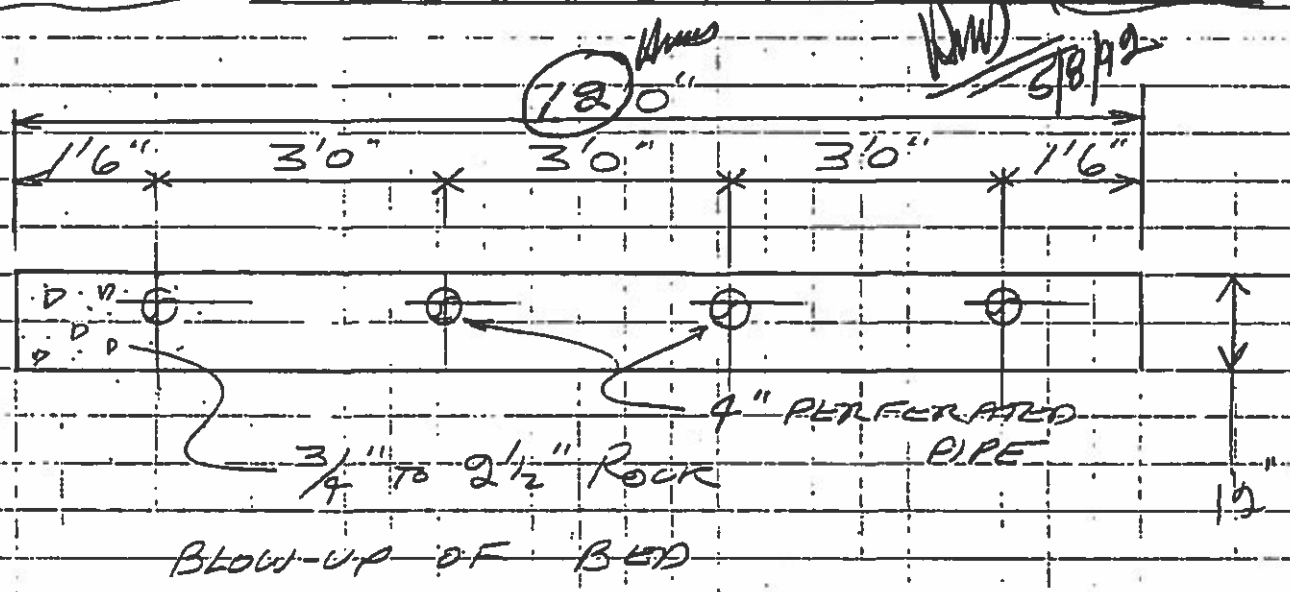 5/8/92
12'0"
1'6" 3'0" 3'0" 3'0" 1'6"
4" PERFERATED
PIPE
3/4" TO 2 1/2" ROCK
12"
BLOW-UP OF BED